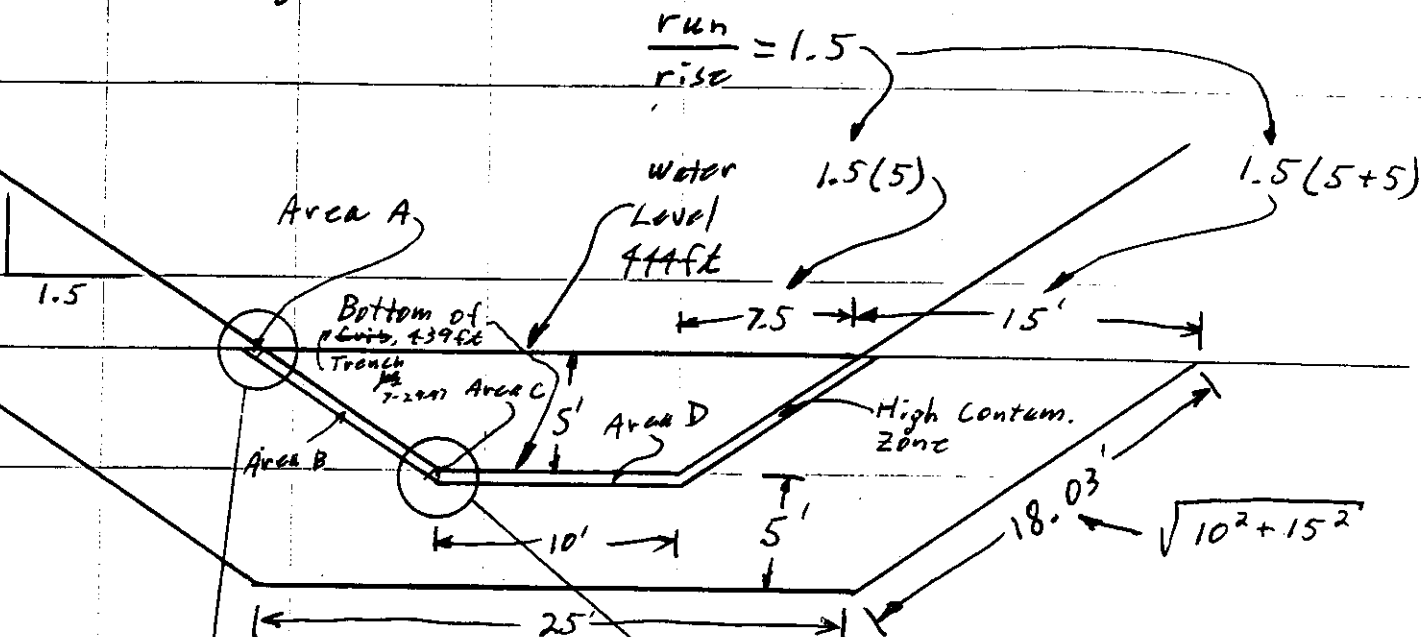 run
rise
= 1.5
1.5(5)
1.5(5+5)
water
Level
444ft
Area A
1.5
Bottom of
439ft
Trench
7.5
15'
5'
Area C
Area D
High Contam.
Zone
Area B
10'
5'
18.03'
√10² + 15²
25'